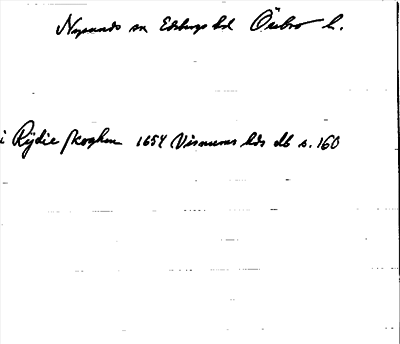 Nysunds sn Edsbergs hd Örebro l.
i Rijdie skoghen 1654 Visnums hds db s. 160